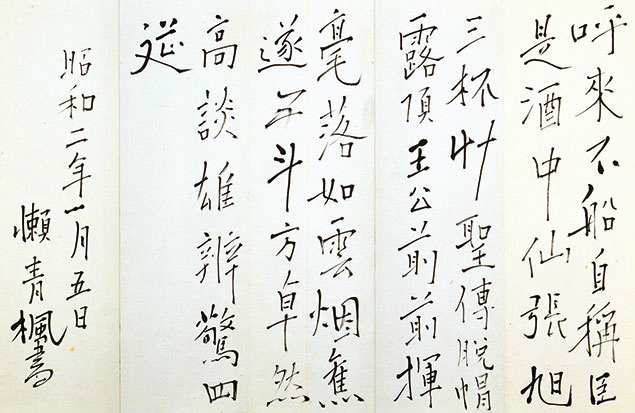 呼來不船自稱臣
是酒中仙張旭
三杯艸聖傳脱帽
露頂王公前前揮
毫落如雲烟焦
遂五斗方卓然
高談雄辨驚四
筵
昭和二年一月五日
懶青楓書